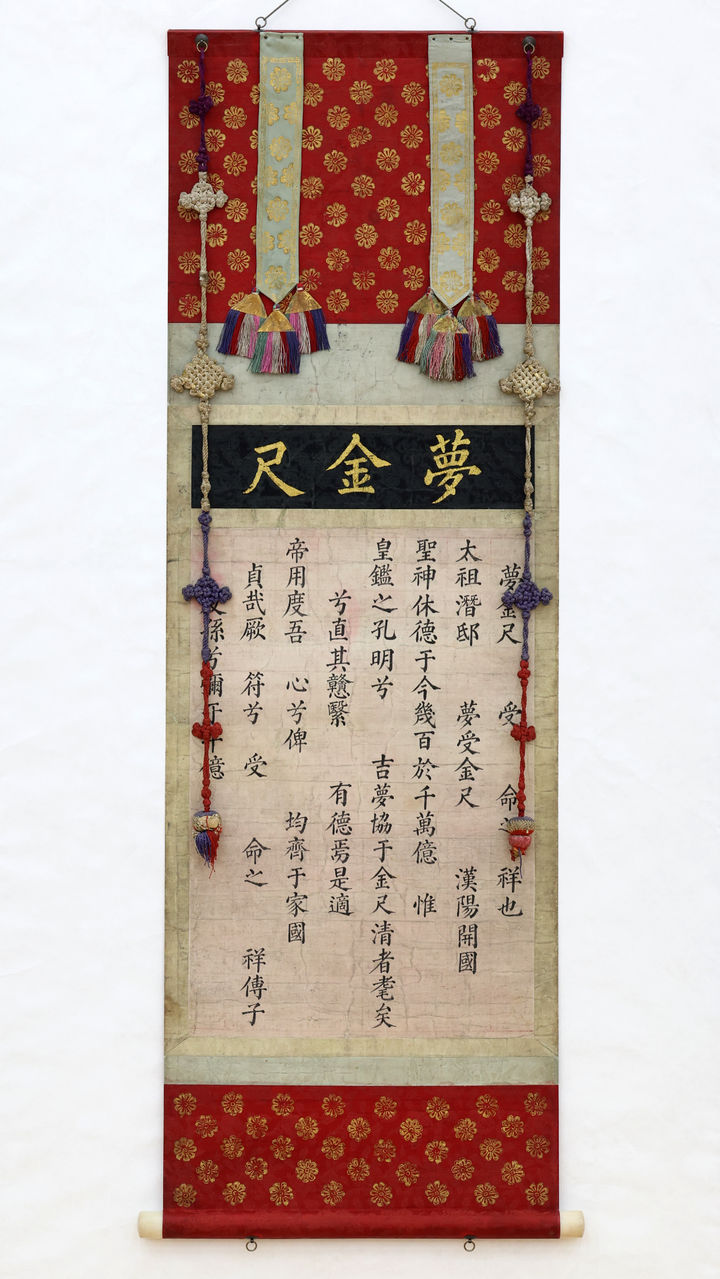 夢金尺
夢金尺 受 命之 祥也
太祖潛邸 夢受金尺 漢陽開國
聖神休德于今幾百於千萬億 惟
皇鑑之孔明兮 吉夢協于金尺清者耄矣
兮直其戇繄 有德焉是適
帝用度吾 心兮俾 均齊于家國
貞哉厥 符兮 受 命之 祥傳子
孫兮彌于千億